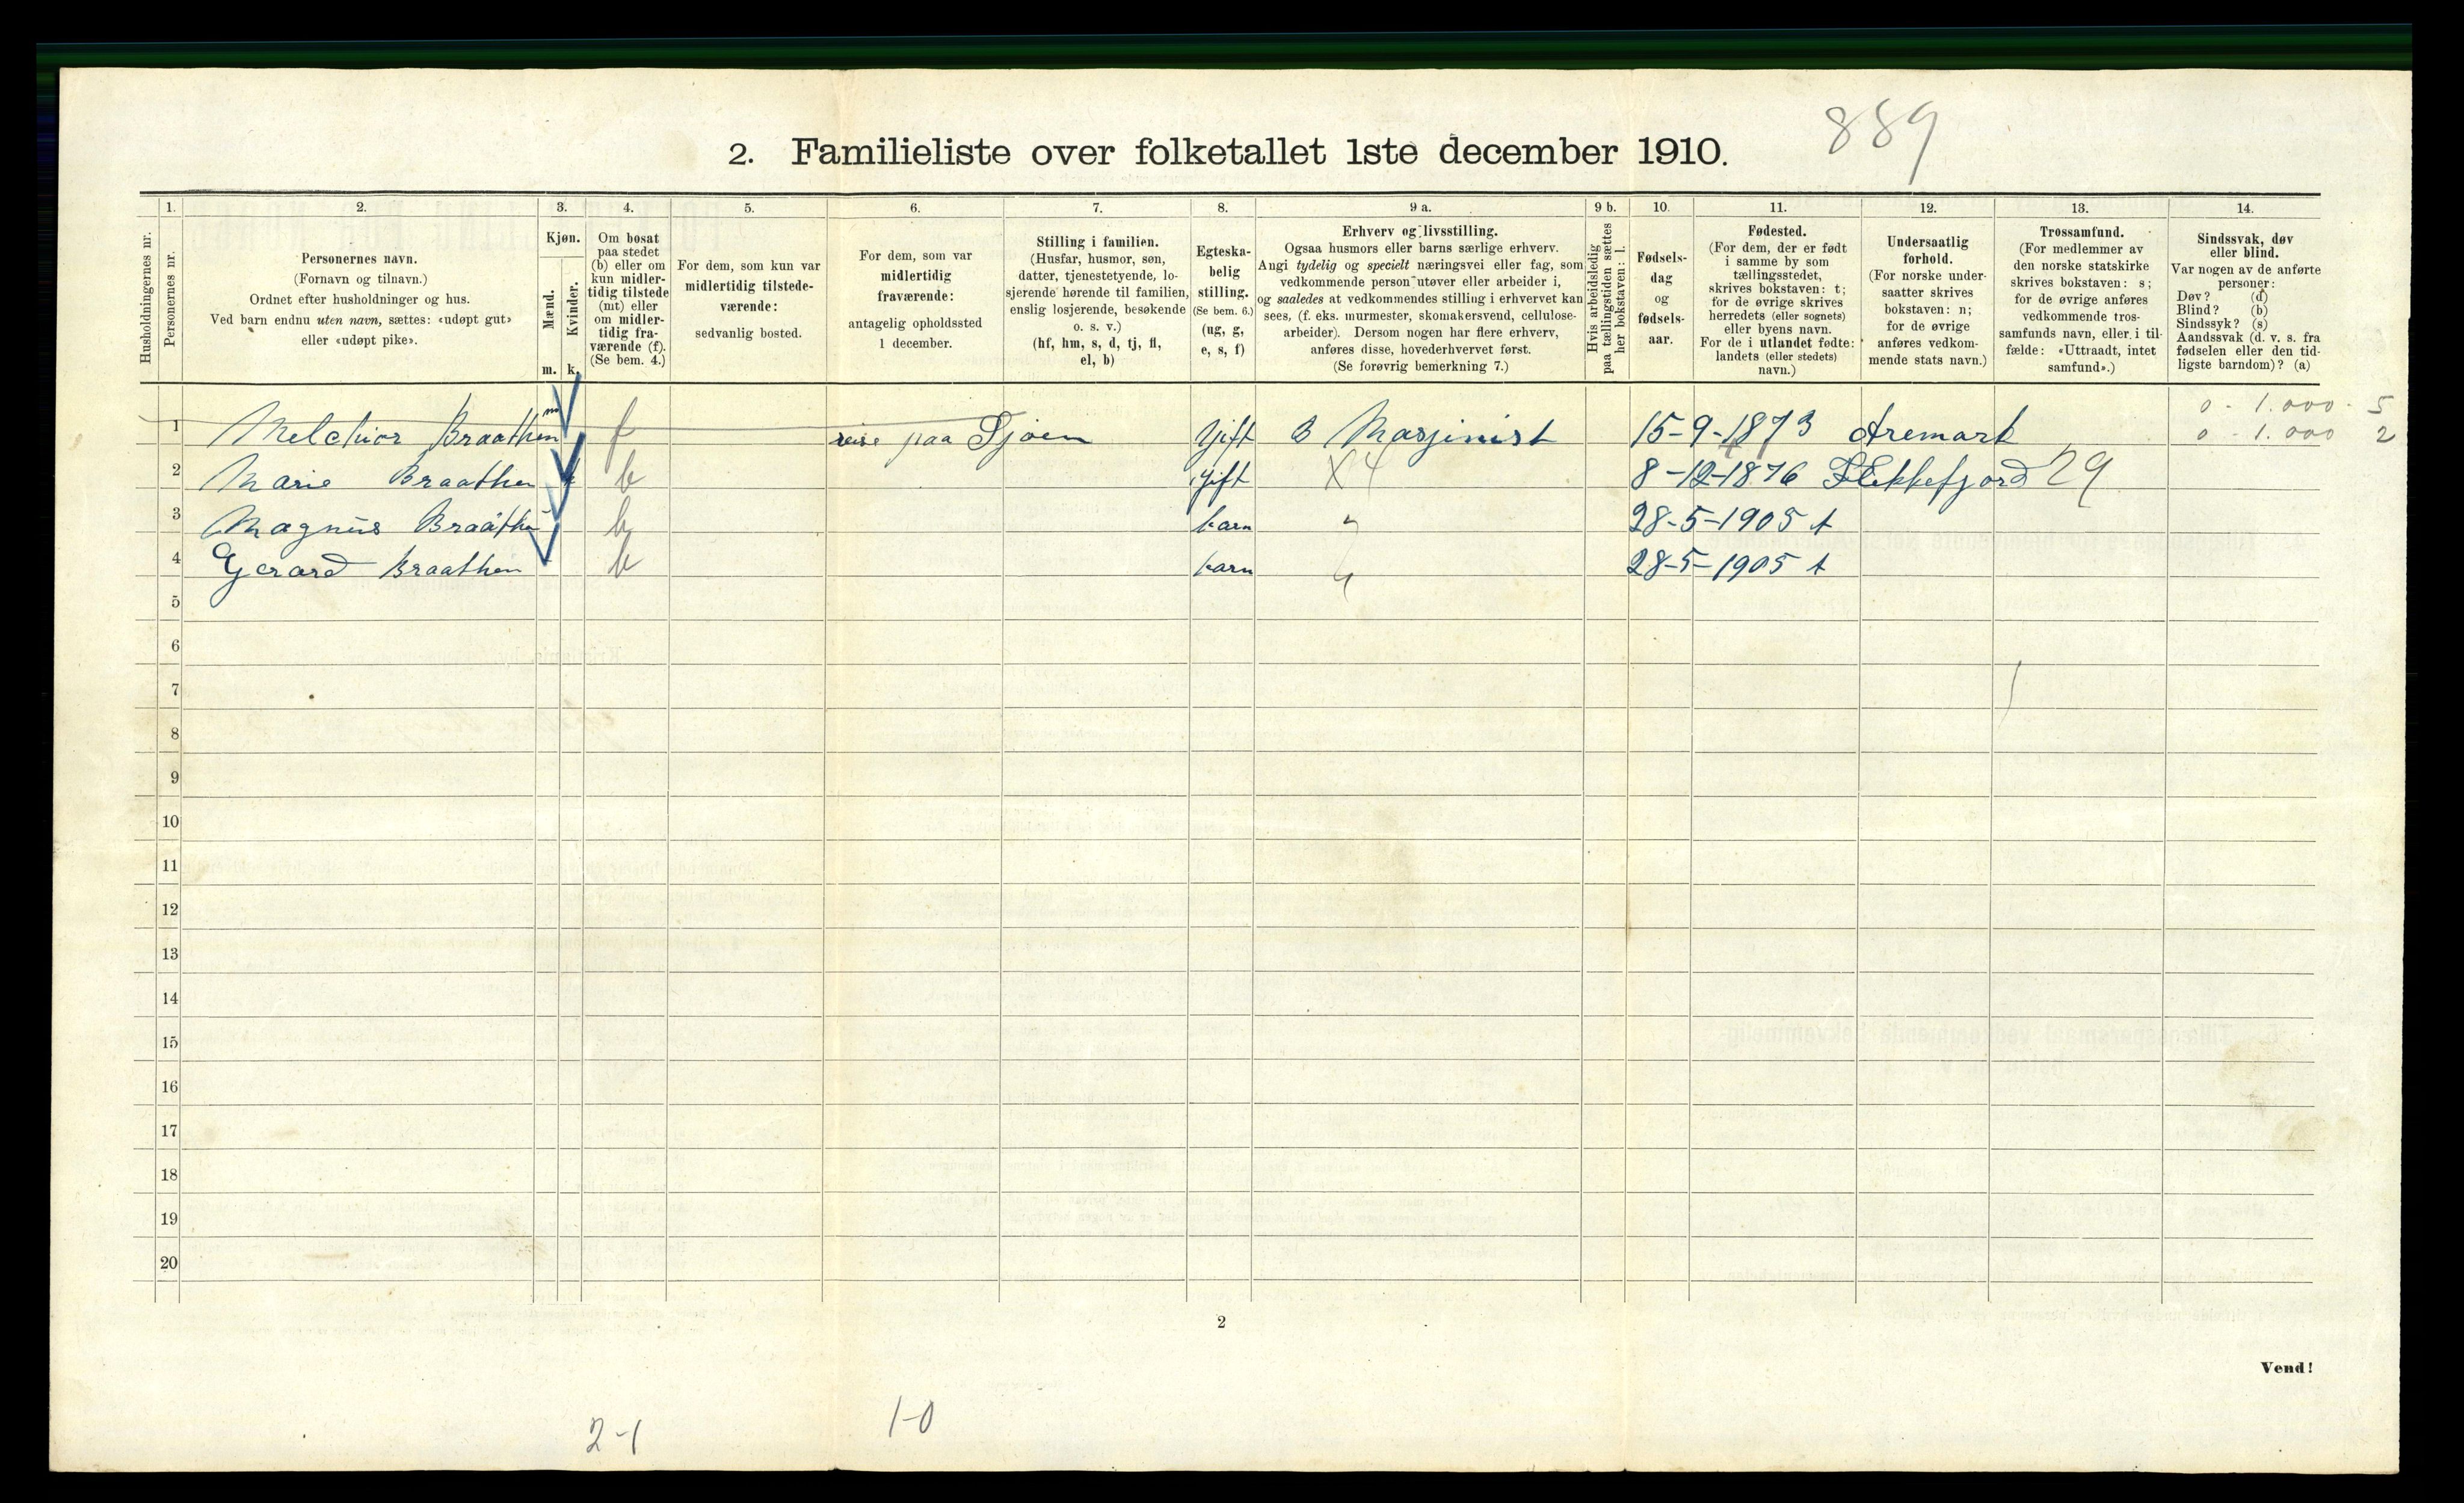 889
2. Familieliste over folketallet 1ste december 1910.
1. 2. 3. 4. 5. 6. 7. 8. 9 a. 9 b. 10. 11. 12. 13. 14.
Husholdningernes nr.
Personernes nr.
Personernes navn.
(Fornavn og tilnavn.)
Ordnet efter husholdninger og hus.
Ved barn endnu uten navn, sættes: «udøpt gut»
eller «udøpt pike».
Kjøn.
Mænd.
Kvinder.
m. k.
Om bosat
paa stedet
(b) eller om
kun midler-
tidig tilstede
(mt) eller
om midler-
tidig fra-
værende (f).
(Se bem. 4.)
For dem, som kun var
midlertidig tilstede-
værende:
sedvanlig bosted.
For dem, som var
midlertidig
fraværende:
antagelig opholdssted
1 december.
Stilling i familien.
(Husfar, husmor, søn,
datter, tjenestetyende, lo-
sjerende hørende til familien,
enslig losjerende, besøkende
o. s. v.)
(hf, hm, s, d, tj, fl,
el, b)
Egteska-
belig
stilling.
(Se bem. 6.)
(ug, g,
e, s, f)
Erhverv og livsstilling.
Ogsaa husmors eller barns særlige erhverv.
Angi tydelig og specielt næringsvei eller fag, som
vedkommende person utøver eller arbeider i,
og saaledes at vedkommendes stilling i erhvervet kan
sees, (f. eks. murmester, skomakersvend, cellulose-
arbeider). Dersom nogen har flere erhverv,
anføres disse, hovederhvervet først.
(Se forøvrig bemerkning 7.)
Hvis arbeidsledig
paa tællingstiden sættes
her bokstaven: l.
Fødsels-
dag
og
fødsels-
aar.
Fødested.
(For dem, der er født
i samme by som
tællingsstedet,
skrives bokstaven: t;
for de øvrige skrives
herredets (eller sognets)
eller byens navn.
For de i utlandet fødte:
landets (eller stedets)
navn.)
Undersaatlig
forhold.
(For norske under-
saatter skrives
bokstaven: n;
for de øvrige
anføres vedkom-
mende stats navn.)
Trossamfund.
(For medlemmer av
den norske statskirke
skrives bokstaven: s;
for de øvrige anføres
vedkommende tros-
samfunds navn, eller i til-
fælde: «Uttraadt, intet
samfund».)
Sindssvak, døv
eller blind.
Var nogen av de anførte
personer:
Døv? (d)
Blind? (b)
Sindssyk? (s)
Aandssvak (d. v. s. fra
fødselen eller den tid-
ligste barndom)? (a)
0 - 1.000 - 5
1 Melchior Braathen m f reise paa Sjøen Gift B Masjinist 15-9-1873 Aremark 0 - 1.000 2
2 Marie Braathen k b gift X 4 8-12-1876 Flekkefjord 29
3 Magnus Braathen b barn 28-5-1905 t
4 Gerard Braathen b barn 28-5-1905 t
5
6
7
8
9
10
11
12
13
14
15
16
17
18
19
20
2
Vend!
2-1 1-0